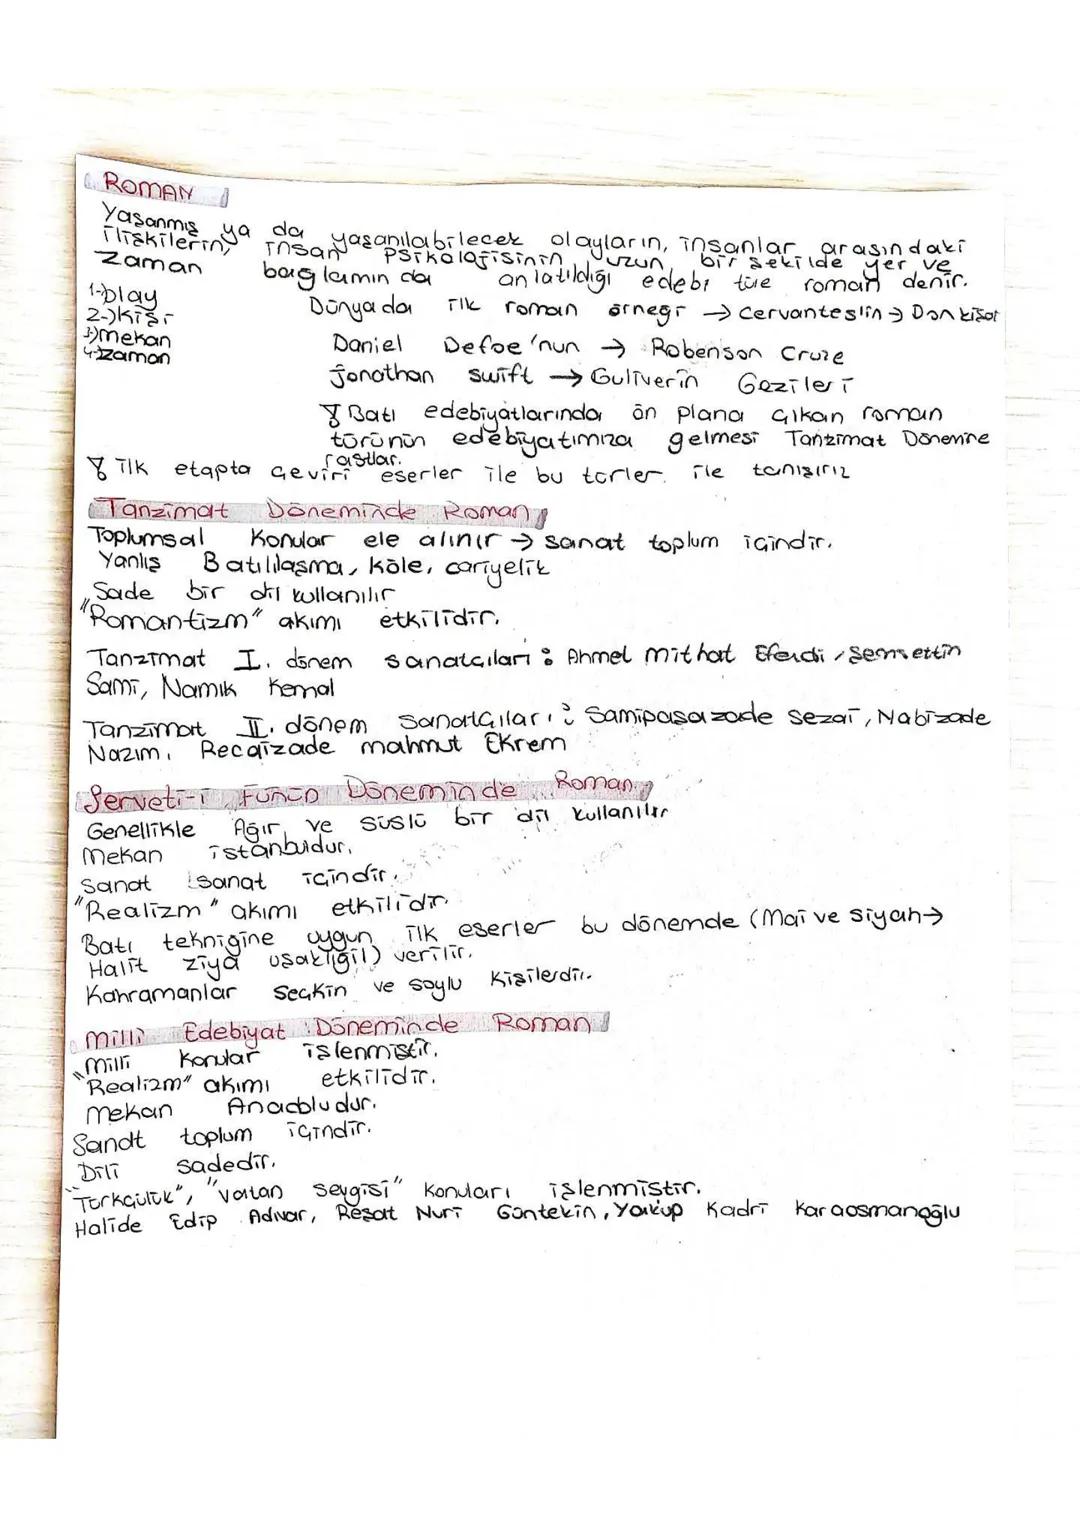 ROMAN
Yaşanmış ya da yaşanılabilecek olayların, insanlar arasındaki
ilişkilerin, insan psikolojisinin uzun bir şekilde yer ve
zaman bağlamında anlatıldığı edebi türe roman denir.
1-)olay
2-)kişi
3-)mekan
4-)zaman
Dünyada ilk roman örneği → Cervantes'in → Don kişot
Daniel Defoe'nun → Robenson Cruze
Jonathan swift → Guliver'in Gezileri
Batı edebiyatlarında ön plana çıkan roman
türünün edebiyatımıza gelmesi Tanzimat Dönemine
rastlar.
İlk etapta çeviri eserler ile bu türler ile tanışırız
Tanzimat Döneminde Roman
Toplumsal konular ele alınır → sanat toplum içindir.
Yanlış Batılılaşma, köle, cariyelik
Sade bir dil kullanılır
"Romantizm" akımı etkilidir.
Tanzimat I. dönem sanatçıları: Ahmet mithat Efendi, Şemsettin
Sami, Namık Kemal
Tanzimat II. dönem sanatçıları: Samipaşazade sezai, Nabizade
Nazım, Recaizade mahmut Ekrem
Serveti-i Fünun Döneminde Roman
Genellikle Ağır ve süslü bir dil kullanılır
Mekan istanbuldur.
Sanat sanat içindir.
"Realizm" akımı etkilidir.
Batı tekniğine uygun ilk eserler bu dönemde (Mai ve siyah→
Halit ziya uşaklıgil) verilir.
Kahramanlar seçkin ve soylu kişilerdir.
Milli Edebiyat Döneminde Roman
Milli konular işlenmiştir.
"Realizm" akımı etkilidir.
Mekan Anadoludur.
Sanat toplum içindir.
Dili sadedir.
"Türkçülük", "vatan sevgisi" konuları işlenmiştir.
Halide Edip Adıvar, Reşat Nuri Güntekin, Yakup Kadri Karaosmanoğlu